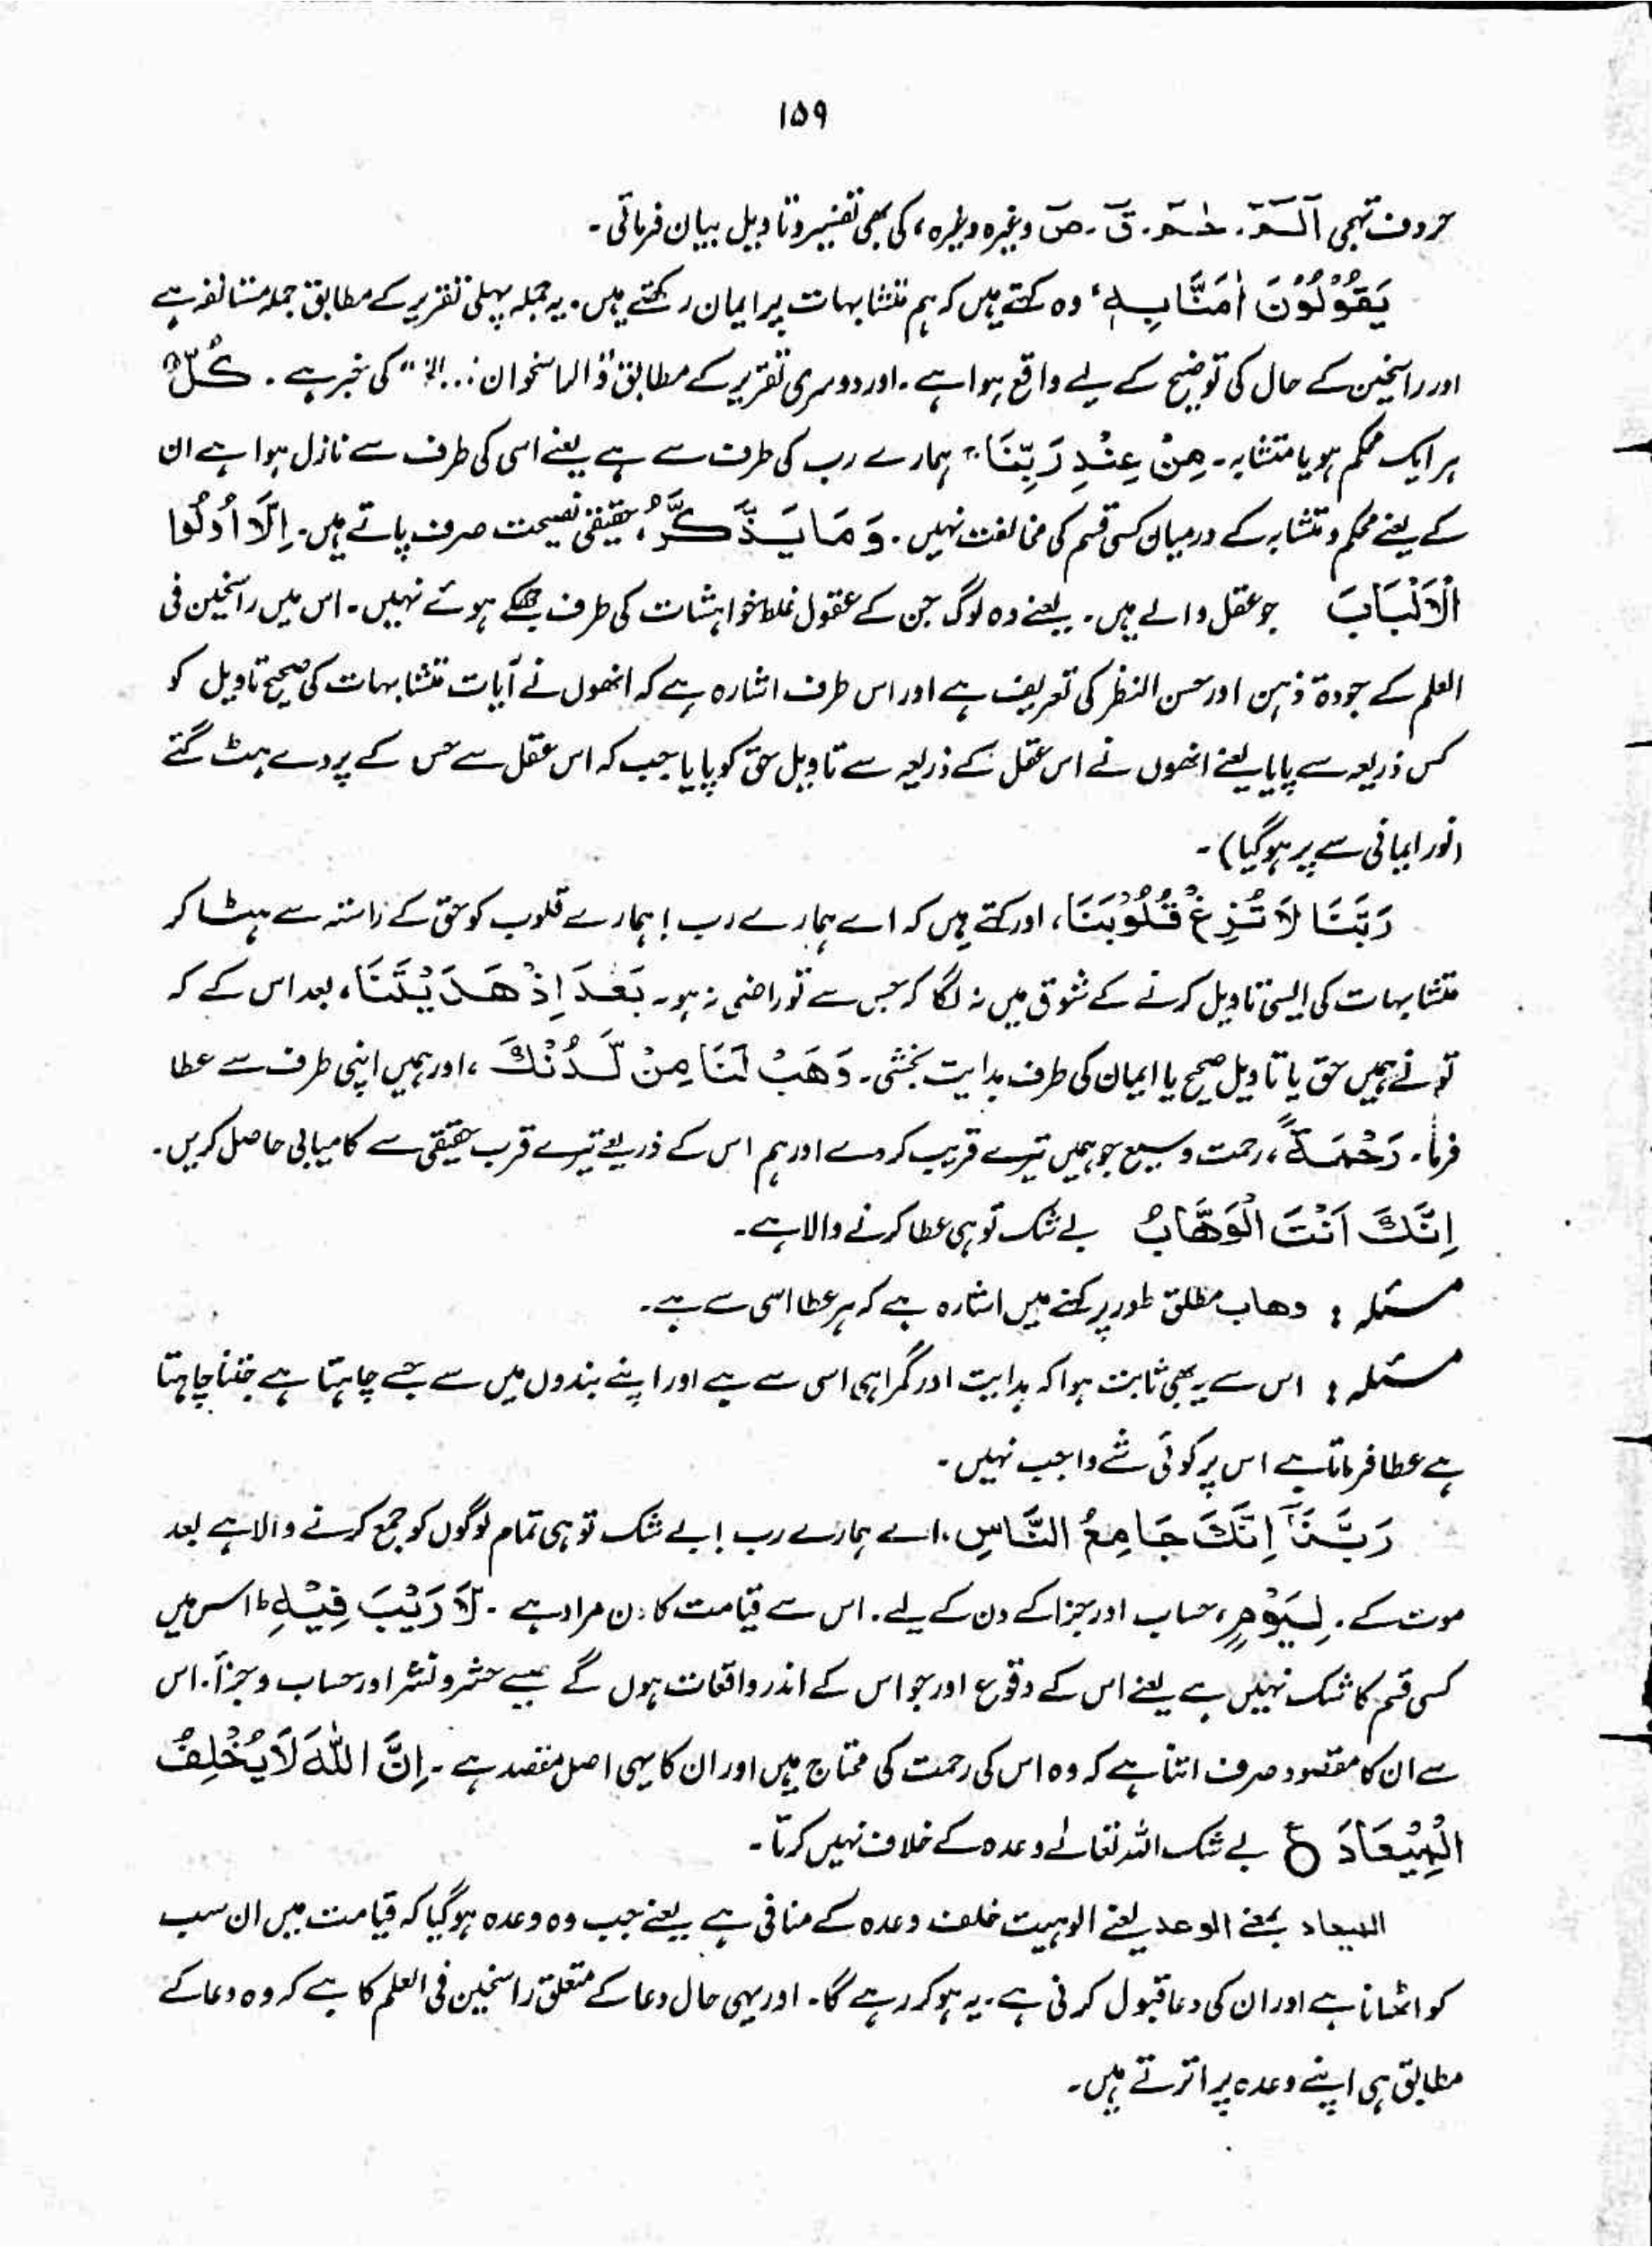 ۱۵۹
حروف تہجی آلٓمّٓ۔ حٰمٓ۔ قٓ۔ صٓ وغیرہ وغیرہ، کی بھی تفسیر و تاویل بیان فرمائی۔
يَقُوْلُوْنَ اٰمَنَّا بِهٖ، وہ کہتے ہیں کہ ہم متشابہات پر ایمان رکھتے ہیں۔ یہ جملہ پہلی تقریر کے مطابق جملہ مستانفہ ہے
اور راسخین کے حال کی توضیح کے لیے واقع ہوا ہے۔ اور دوسری تقریر کے مطابق "والراسخوان:...الخ" کی خبر ہے۔ كُلٌّ
ہر ایک محکم ہو یا متشابہ۔ مِنْ عِنْدِ رَبِّنَا" ہمارے رب کی طرف سے ہے یعنے اسی کی طرف سے نازل ہوا ہے ان
کے یعنے محکم و متشابہ کے درمیان کسی قسم کی مخالفت نہیں۔ وَمَا يَذَّكَّرُ، حقیقی نصیحت صرف پاتے ہیں۔ اِلَّا اُولُوا
الْاَلْبَابَ جو عقل والے ہیں۔ یعنے وہ لوگ جن کے عقول غلط خواہشات کی طرف جھکے ہوئے نہیں۔ اس میں راسخین فی
العلم کے جودۃ ذہن اور حسن النظر کی تعریف ہے اور اس طرف اشارہ ہے کہ انھوں نے آیات متشابہات کی صحیح تاویل کو
کس ذریعہ سے پایا یعنے انھوں نے اس عقل کے ذریعہ سے تاویل حق کو پایا جب کہ اس عقل سے حس کے پردے ہٹ گئے
(نور ایمانی سے پر ہو گیا)۔
رَبَّنَا لَا تُزِغْ قُلُوْبَنَا، اور کہتے ہیں کہ اے ہمارے رب! ہمارے قلوب کو حق کے راستہ سے ہٹا کر
متشابہات کی ایسی تاویل کرنے کے شوق میں نہ لگا کہ جس سے تو راضی نہ ہو۔ بَعْدَ اِذْ هَدَيْتَنَا، بعد اس کے کہ
تو نے ہمیں حق یا تاویل صحیح یا ایمان کی طرف ہدایت بخشی۔ وَهَبْ لَنَا مِنْ لَّدُنْكَ، اور ہمیں اپنی طرف سے عطا
فرما۔ رَحْمَةً، رحمت وسیع جو ہمیں تیرے قریب کر دے اور ہم اس کے ذریعے تیرے قرب حقیقی سے کامیابی حاصل کریں۔
اِنَّكَ اَنْتَ الْوَهَّابُ بے شک تو ہی عطا کرنے والا ہے۔
مسئلہ: وھاب مطلق طور پر کہنے میں اشارہ ہے کہ ہر عطا اسی سے ہے۔
مسئلہ: اس سے یہ بھی ثابت ہوا کہ ہدایت اور گمراہی اسی سے ہے اور اپنے بندوں میں سے جسے چاہتا ہے جتنا چاہتا
ہے عطا فرماتا ہے اس پر کوئی شے واجب نہیں۔
رَبَّنَآ اِنَّكَ جَامِعُ النَّاسِ، اے ہمارے رب! بے شک تو ہی تمام لوگوں کو جمع کرنے والا ہے بعد
موت کے۔ لِيَوْمٍ، حساب اور جزا کے دن کے لیے۔ اس سے قیامت کا دن مراد ہے۔ لَا رَيْبَ فِيْهِ ط اس میں
کسی قسم کا شک نہیں ہے یعنے اس کے وقوع اور جو اس کے اندر واقعات ہوں گے جیسے حشر و نشر اور حساب و جزأ۔ اس
سے ان کا مقصود صرف اتنا ہے کہ وہ اس کی رحمت کی محتاج ہیں اور ان کا یہی اصل مقصد ہے۔ اِنَّ اللّٰهَ لَا يُخْلِفُ
الْمِيْعَادَ ع بے شک اللہ تعالےٰ وعدہ کے خلاف نہیں کرتا۔
المیعاد بمعنے الوعد یعنے الوہیت خلف وعدہ کے منافی ہے یعنے جب وہ وعدہ ہو گیا کہ قیامت میں ان سب
کو اٹھانا ہے اور ان کی دعا قبول کرنی ہے۔ یہ ہو کر رہے گا۔ اور یہی حال دعا کے متعلق راسخین فی العلم کا ہے کہ وہ دعا کے
مطابق ہی اپنے وعدہ پر اترتے ہیں۔